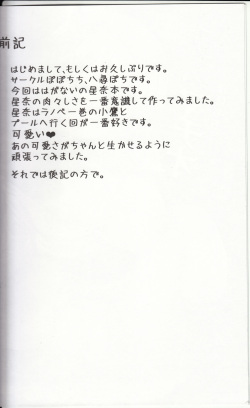 前記
はじめまして、もしくはお久しぶりです。
サークルぽぽちち、八尋ぽちです。
今回ははがないの星奈本です。
星奈の肉々しさを一番意識して作ってみました。
星奈はラノベ一巻の小鷹と
プールへ行く回が一番好きです。
可愛い♥
あの可愛さがちゃんと生かせるように
頑張ってみました。
それでは後記の方で。